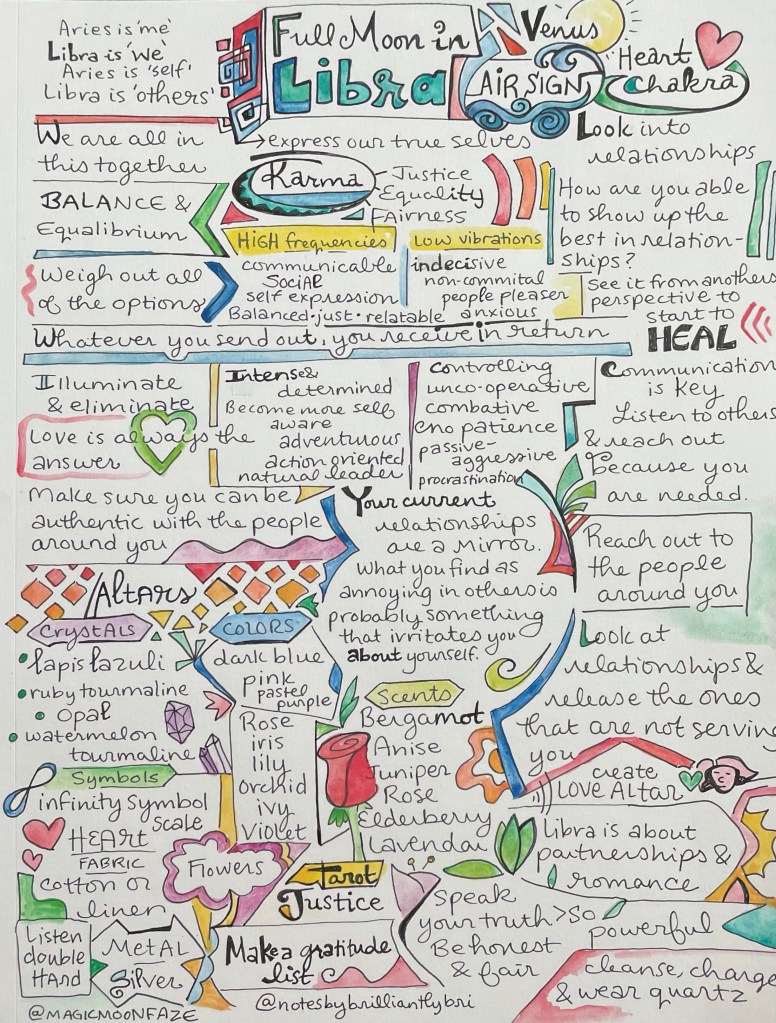 Aries is 'me'
Libra is 'we'
Aries is 'self'
Libra is 'others'
Full Moon in
Libra
Venus
AIR SIGN
Heart
Chakra
We are all in
this together
→express our true selves
Look into
relationships
Karma
Justice
Equality
Fairness
BALANCE &
Equalibrium
How are you able
to show up the
best in relation-
ships?
HIGH frequencies
communicable
Social
self expression
Balanced·just·relatable
LOW vibrations
indecisive
non-commital
people pleaser
anxious
Weigh out all
of the options
See it from anothers
perspective to
start to
HEAL
Whatever you send out, you receive in return
Illuminate
& eliminate
Love is always the
answer
Intense&
determined
Become more self
aware
adventurous
action oriented
natural leader
controlling
unco-operative
combative
no patience
passive-
aggressive
procrastination
Communication
is key
Listen to others
& reach out
Because you
are needed.
Make sure you can be
authentic with the people
around you
Your current
relationships
are a mirror.
What you find as
annoying in others is
probably something
that irritates you
about yourself.
Reach out to
the people
around you
Altars
Crystals
lapis lazuli
ruby tourmaline
opal
watermelon
tourmaline
COLORS
dark blue
pink
pastel
purple
Scents
Bergamot
Anise
Juniper
Rose
Elderberry
Lavendar
Look at
relationships &
release the ones
that are not serving
you
Rose
iris
lily
orchid
ivy
Violet
Flowers
Symbols
infinity symbol
scale
HEART
FABRIC
cotton or
linen
create
LOVE ALTAR
Libra is about
partnerships &
romance
Tarot
Justice
Speak
your truth > So
powerful
Be honest
& fair
Listen
double
HAnd
METAL
Silver
Make a gratitude
list
cleanse, charge
& wear quartz
@MAGICMOONFAZE
@notesbybrilliantlybri